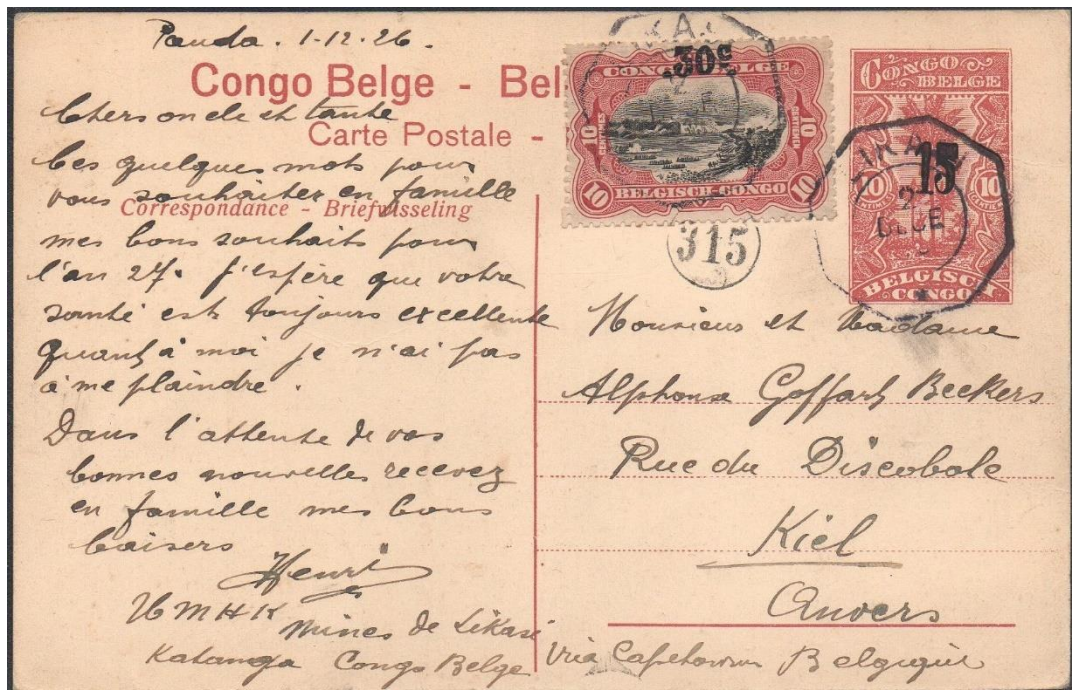 Panda. 1-12-26.
Congo Belge - Bel
Carte Postale -
Correspondance - Briefwisseling
Chers oncle et tante
Ces quelques mots pour
vous souhaiter en famille
mes bons souhaits pour
l'an 27. J'espère que votre
santé est toujours excellente
quant à moi je n'ai pas
à me plaindre.
Dans l'attente de vos
bonnes nouvelles recevez
en famille mes bons
baisers
Henri
UMHK
Mines de Likasi
Katanga Congo Belge
30c
CONGO BELGE
10 10
10 BELGISCH-CONGO 10
315
CONGO
BELGE
15
10 10
CENTIMES
BELGISCH
CONGO
2
DECE
Monsieur et Madame
Alphonse Goffart Beckers
Rue du Discobole
Kiel
Anvers
Via Capetown Belgique